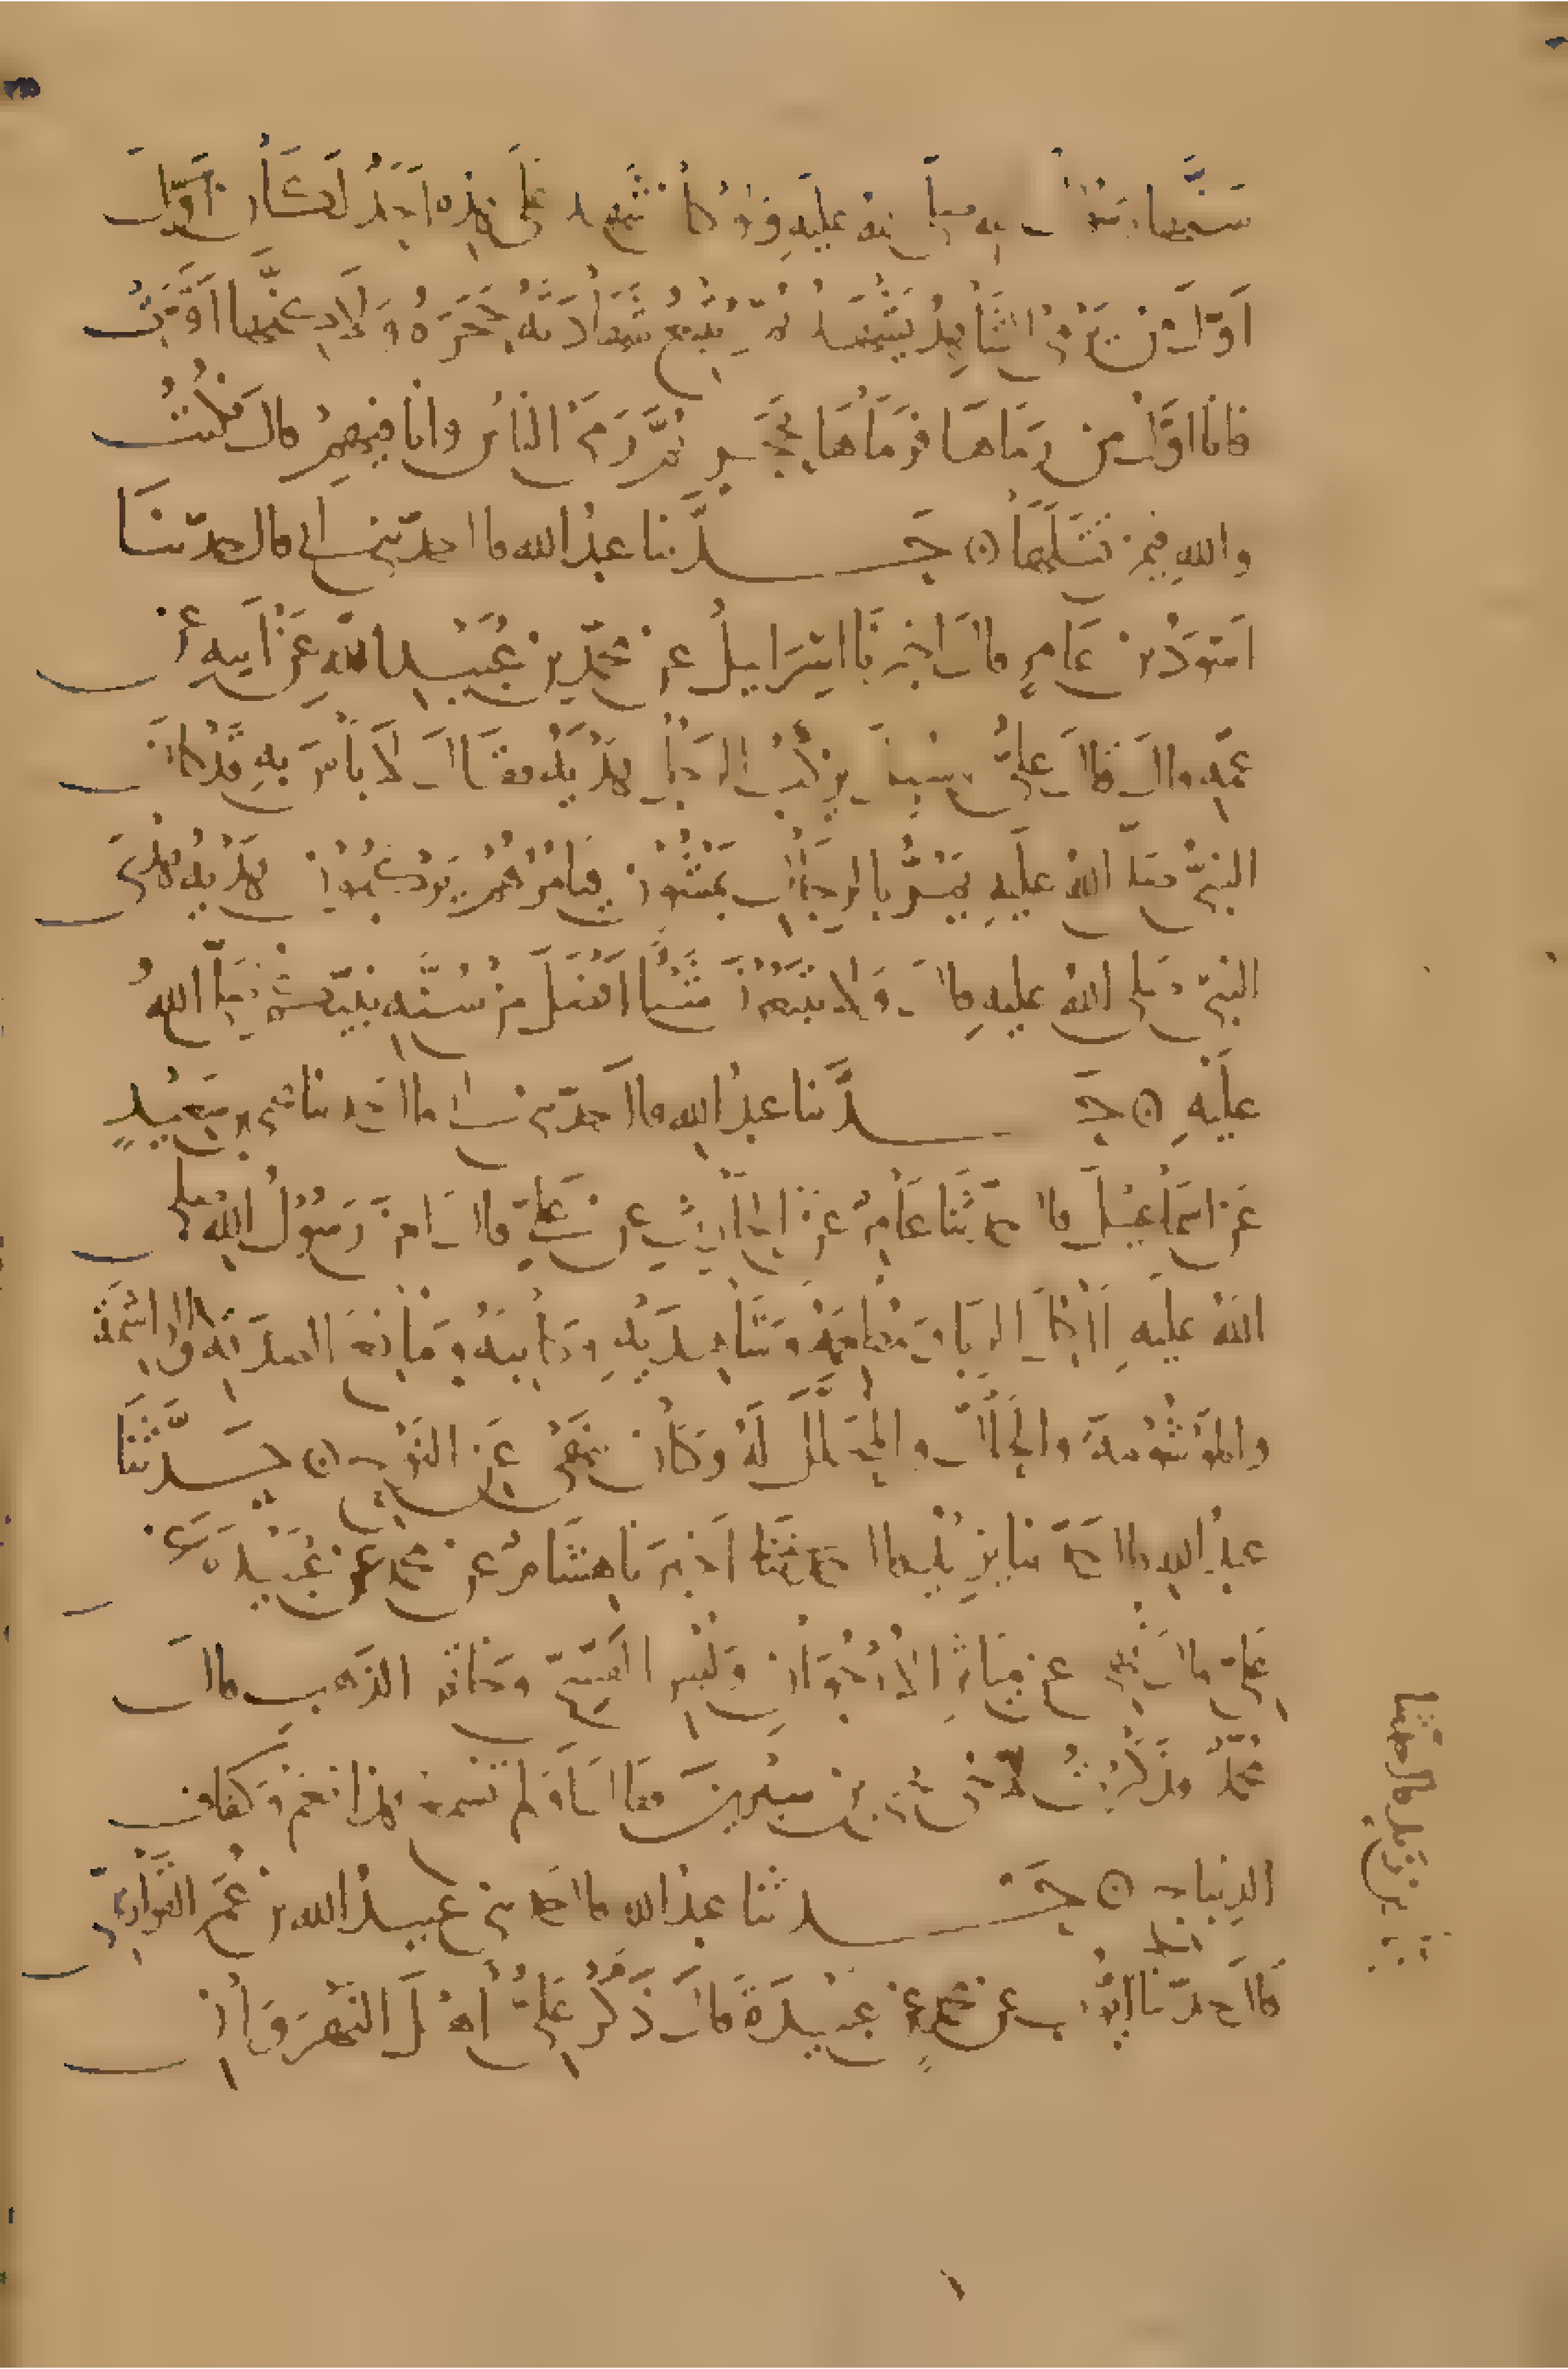 سنها رسول الله صلى الله عليه ولو كان شهد على هذه احد لكان اول
اول من يرمي الشاهد يشهد ثم يتبع شهادته حجره ولكنها اقرت
فانا اول من رماها فرماها بحجر ثم رمى الناس وانا فيهم قال فكنت
والله فيمن قتلها حدثنا عبد الله قال حدثني ابي قال حدثنا
اسود بن عامر قال اخبرنا اسرايل عن محمد بن عبيد الله عن ابيه عن
عمه قال قال علي وسئل يركب الرجل هديه فقال لا باس به قد كان
النبي صلى الله عليه يمر بالرجال يمشون فيامرهم يركبون هديه هدي
النبي صلى الله عليه قال ولا تتبعون شيا افضل من سنة نبيكم صلى الله
عليه حدثنا عبد الله قال حدثني ابي قال حدثنا يحيى بن سعيد
عن اسماعيل قال حدثنا عامر عن الحارث عن علي قال لعن رسول الله صلى
الله عليه اكل الربا ومطعمه وشاهديه وكاتبه ومانع الصدقة والواشمة
والموشومة والحال والمحلل له وكان ينهى عن النوح حدثنا
عبد الله قال حدثنا يزيد قال اخبرنا هشام عن محمد عن عبيدة عن
علي قال نهى عن مياثر الارجوان ولبس القسي وخاتم الذهب قال
محمد فذكرت لاخي بن سيرين فقال اولم تسمع هذا نعم وكفاف
الديباج حدثنا عبد الله قال حدثني عبيد الله بن عمر القواريري
قال حدثنا ايوب عن محمد عن عبيدة قال ذكر علي اهل النهروان